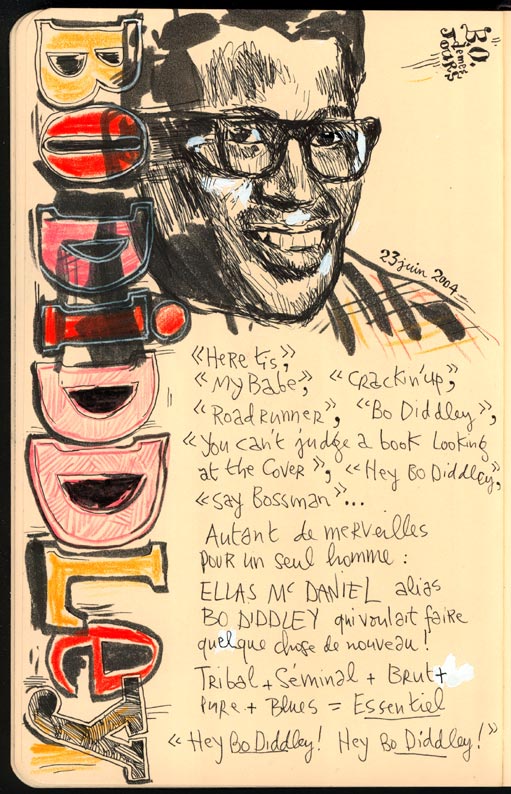 Bo DiDDLey
B.O.
de mes
JOURS
23 juin 2004
«Here tis»,
«My Babe», «Crackin'up»,
«Roadrunner», «Bo Diddley»,
«You can't judge a book Looking
at the Cover», «Hey Bo Diddley»,
«Say Bossman»...
Autant de merveilles
pour un seul homme :
ELLAS Mc DANIEL alias
BO DIDDLEY qui voulait faire
quelque chose de nouveau !
Tribal + Séminal + Brut +
Pure + Blues = Essentiel
«Hey Bo Diddley! Hey Bo Diddley!»